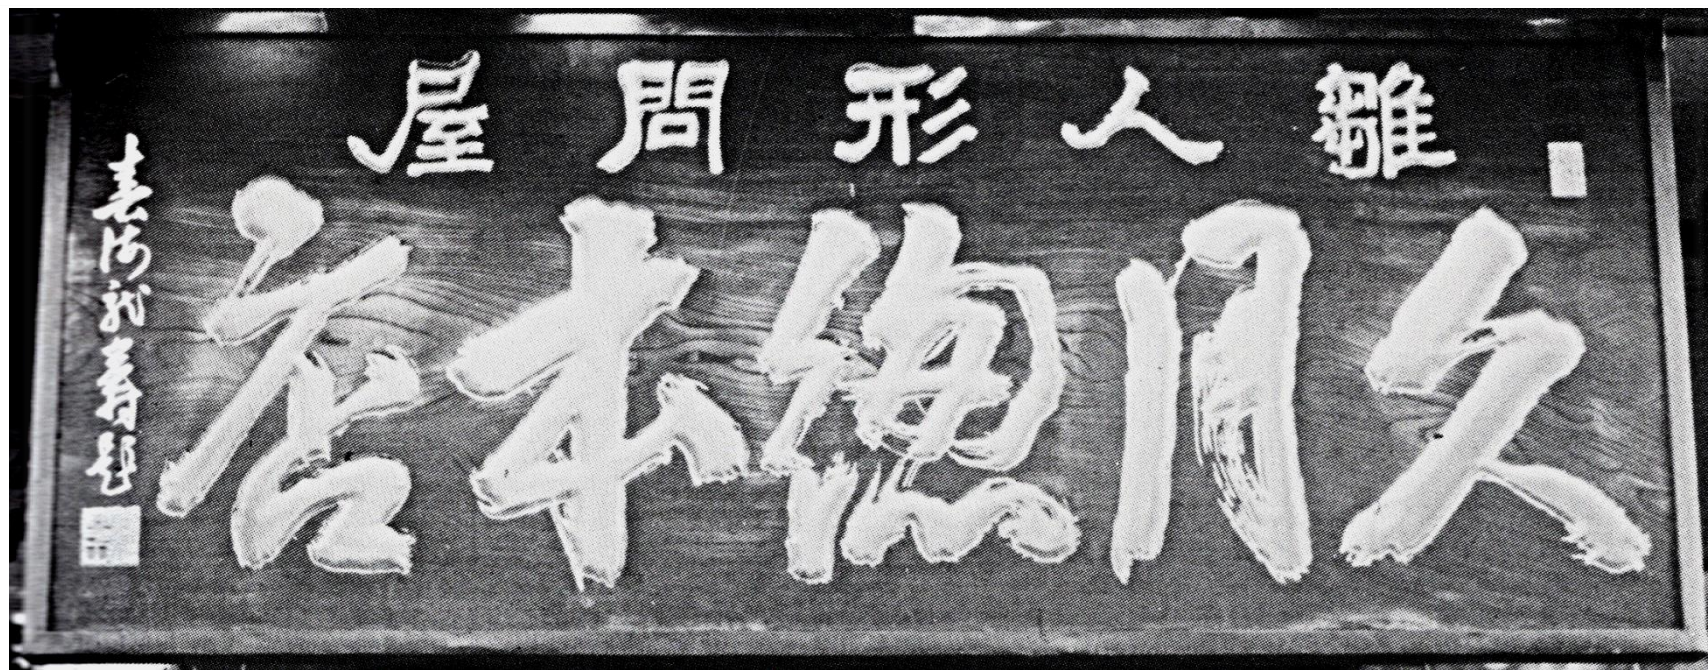 雛人形問屋
久月總本店